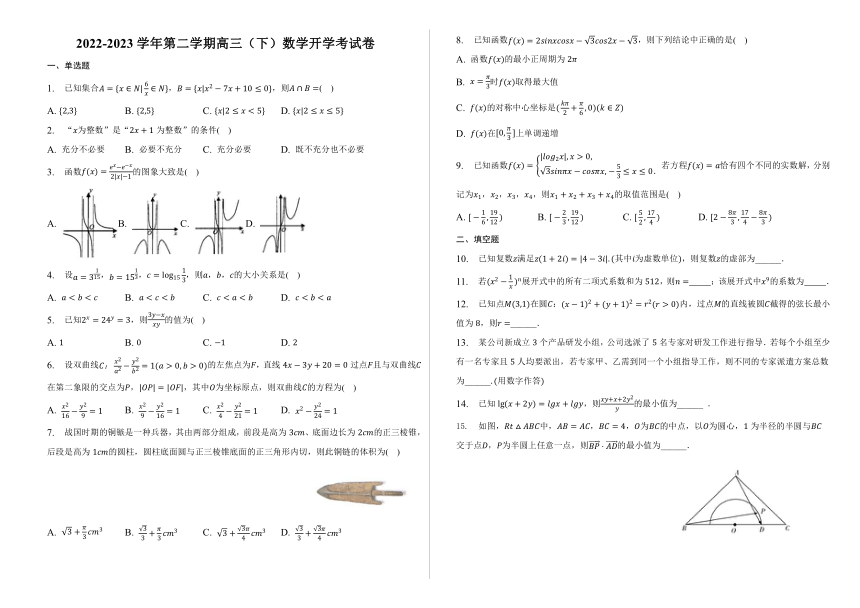 2022-2023 学年第二学期高三（下）数学开学考试卷
一、单选题
1. 已知集合A = {x ∈ N|6/x ∈ N}，B = {x|x² − 7x + 10 ≤ 0}，则A ∩ B =( )
A. {2,3} B. {2,5} C. {x|2 ≤ x < 5} D. {x|2 ≤ x ≤ 5}
2. “x为整数”是“2x + 1 为整数”的条件( )
A. 充分不必要 B. 必要不充分 C. 充分必要 D. 既不充分也不必要
3. 函数f(x) = (eˣ−e⁻ˣ)/(2|x|−1)的图象大致是( )
A. B. C. D.
4. 设a = 3^(1/15)，b = 15^(1/3)，c = log₁₅ 1/3，则a，b，c的大小关系是( )
A. a < b < c B. a < c < b C. c < a < b D. c < b < a
5. 已知2ˣ = 24ʸ = 3，则(3y−x)/xy的值为( )
A. 1 B. 0 C. −1 D. 2
6. 设双曲线C：x²/a² − y²/b² = 1(a > 0, b > 0)的左焦点为F，直线 4x − 3y + 20 = 0 过点F且与双曲线C
在第二象限的交点为P，|OP| = |OF|，其中O为坐标原点，则双曲线C的方程为( )
A. x²/16 − y²/9 = 1 B. x²/9 − y²/16 = 1 C. x²/4 − y²/21 = 1 D. x² − y²/24 = 1
7. 战国时期的铜镞是一种兵器，其由两部分组成，前段是高为 3cm、底面边长为 2cm的正三棱锥，
后段是高为 1cm的圆柱，圆柱底面圆与正三棱锥底面的正三角形内切，则此铜镞的体积为( )
A. √3 + π/3 cm³ B. √3/3 + π/3 cm³ C. √3 + √3π/4 cm³ D. √3/3 + √3π/4 cm³
8. 已知函数f(x) = 2sinxcosx − √3cos2x − √3，则下列结论中正确的是( )
A. 函数f(x)的最小正周期为 2π
B. x = π/3时f(x)取得最大值
C. f(x)的对称中心坐标是(kπ/2 + π/6, 0)(k ∈ Z)
D. f(x)在[0, π/3]上单调递增
9. 已知函数f(x) = {|log₂x|, x > 0, √3sinπx − cosπx, −5/3 ≤ x ≤ 0. 若方程f(x) = a恰有四个不同的实数解，分别
记为x₁，x₂，x₃，x₄，则x₁ + x₂ + x₃ + x₄的取值范围是( )
A. [−1/6, 19/12) B. [−2/3, 19/12) C. [5/2, 17/4) D. [2 − 8π/3, 17/4 − 8π/3)
二、填空题
10. 已知复数z满足z(1 + 2i) = |4 − 3i|.(其中i为虚数单位)，则复数z的虚部为______．
11. 若(x² − 1/x)ⁿ展开式中的所有二项式系数和为 512，则n =_____；该展开式中x⁹的系数为_____．
12. 已知点M(3,1)在圆C：(x − 1)² + (y + 1)² = r²(r > 0)内，过点M的直线被圆C截得的弦长最小
值为 8，则r =______．
13. 某公司新成立 3 个产品研发小组，公司选派了 5 名专家对研发工作进行指导．若每个小组至少
有一名专家且 5 人均要派出，若专家甲、乙需到同一个小组指导工作，则不同的专家派遣方案总数
为______.(用数字作答)
14. 已知 lg(x + 2y) = lgx + lgy，则(xy+x+2y²)/y的最小值为______ ．
15. 如图，Rt △ ABC中，AB = AC，BC = 4，O为BC的中点，以O为圆心，1 为半径的半圆与BC
交于点D，P为半圆上任意一点，则BP⃗ · AD⃗的最小值为______．
A
P
B O D C